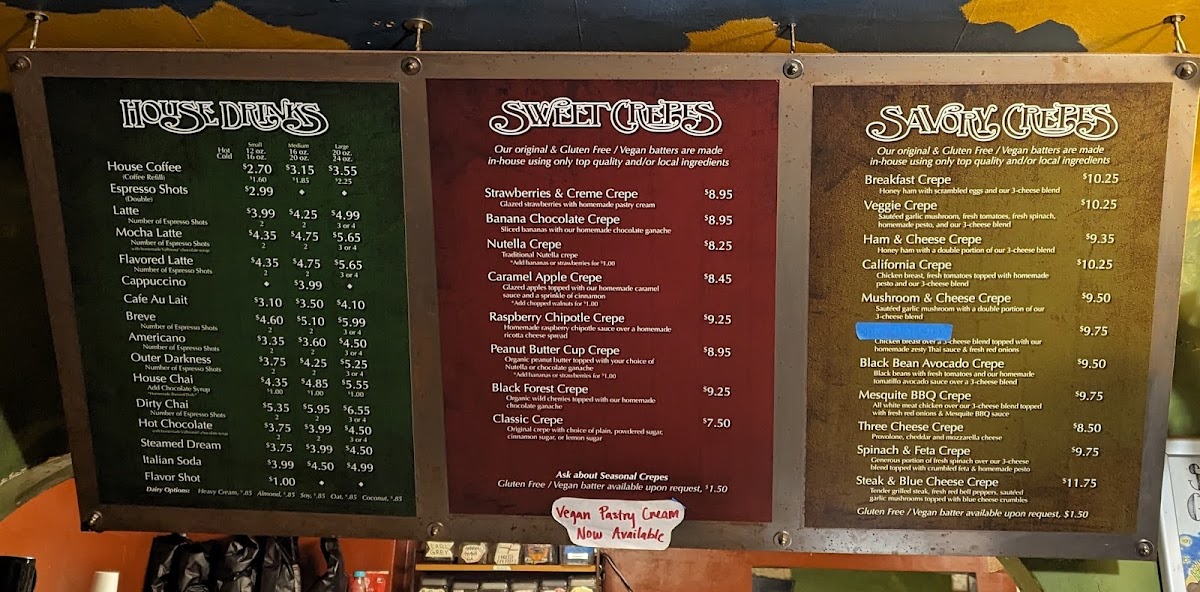 HOUSE DRINKS
Small Medium Large
Hot 12 oz. 16 oz. 20 oz.
Cold 16 oz. 20 oz. 24 oz.
House Coffee $2.70 $3.15 $3.55
(Coffee Refill) $1.60 $1.85 $2.25
Espresso Shots $2.99
(Double)
Latte $3.99 $4.25 $4.99
Number of Espresso Shots 2 2 3 or 4
Mocha Latte $4.35 $4.75 $5.65
Number of Espresso Shots 2 2 3 or 4
Flavored Latte $4.35 $4.75 $5.65
Number of Espresso Shots 2 2 3 or 4
Cappuccino $3.99
Cafe Au Lait $3.10 $3.50 $4.10
Breve $4.60 $5.10 $5.99
Number of Espresso Shots 2 2 3 or 4
Americano $3.35 $3.60 $4.50
Number of Espresso Shots 2 2 3 or 4
Outer Darkness $3.75 $4.25 $5.25
Number of Espresso Shots 2 2 3 or 4
House Chai $4.35 $4.85 $5.55
Add Chocolate Syrup $1.00 $1.00 $1.00
Dirty Chai $5.35 $5.95 $6.55
Number of Espresso Shots 2 2 3 or 4
Hot Chocolate $3.75 $3.99 $4.50
2 2 3 or 4
Steamed Dream $3.75 $3.99 $4.50
Italian Soda $3.99 $4.50 $4.99
Flavor Shot $1.00
Dairy Options: Heavy Cream, $.85 Almond, $.85 Soy, $.85 Oat, $.85 Coconut, $.85
SWEET CREPES
Our original & Gluten Free / Vegan batters are made
in-house using only top quality and/or local ingredients
Strawberries & Creme Crepe $8.95
Glazed strawberries with homemade pastry cream
Banana Chocolate Crepe $8.95
Sliced bananas with our homemade chocolate ganache
Nutella Crepe $8.25
Traditional Nutella crepe
*Add bananas or strawberries for $1.00
Caramel Apple Crepe $8.45
Glazed apples topped with our homemade caramel
sauce and a sprinkle of cinnamon
*Add chopped walnuts for $1.00
Raspberry Chipotle Crepe $9.25
Homemade raspberry chipotle sauce over a homemade
ricotta cheese spread
Peanut Butter Cup Crepe $8.95
Organic peanut butter topped with your choice of
Nutella or chocolate ganache
*Add bananas or strawberries for $1.00
Black Forest Crepe $9.25
Organic wild cherries topped with our homemade
chocolate ganache
Classic Crepe $7.50
Original crepe with choice of plain, powdered sugar,
cinnamon sugar, or lemon sugar
Ask about Seasonal Crepes
Gluten Free / Vegan batter available upon request, $1.50
Vegan Pastry Cream
Now Available
SAVORY CREPES
Our original & Gluten Free / Vegan batters are made
in-house using only top quality and/or local ingredients
Breakfast Crepe $10.25
Honey ham with scrambled eggs and our 3-cheese blend
Veggie Crepe $10.25
Sautéed garlic mushroom, fresh tomatoes, fresh spinach,
homemade pesto, and our 3-cheese blend
Ham & Cheese Crepe $9.35
Honey ham with a double portion of our 3-cheese blend
California Crepe $10.25
Chicken breast, fresh tomatoes topped with homemade
pesto and our 3-cheese blend
Mushroom & Cheese Crepe $9.50
Sautéed garlic mushroom with a double portion of our
3-cheese blend
$9.75
Chicken breast over a 3-cheese blend topped with our
homemade zesty Thai sauce & fresh red onions
Black Bean Avocado Crepe $9.50
Black beans with fresh tomatoes and our homemade
tomatillo avocado sauce over a 3-cheese blend
Mesquite BBQ Crepe $9.75
All white meat chicken over our 3-cheese blend topped
with fresh red onions & Mesquite BBQ sauce
Three Cheese Crepe $8.50
Provolone, cheddar and mozzarella cheese
Spinach & Feta Crepe $9.75
Generous portion of fresh spinach over our 3-cheese
blend topped with crumbled feta & homemade pesto
Steak & Blue Cheese Crepe $11.75
Tender grilled steak, fresh red bell peppers, sautéed
garlic mushrooms topped with blue cheese crumbles
Gluten Free / Vegan batter available upon request, $1.50